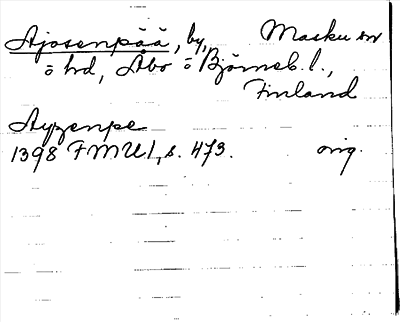 Ajosenpää, by, Masku sn
o hd, Åbo o Björneb. l.,
Finland
Ayzenpe
1398 FMU 1, s. 473. orig.